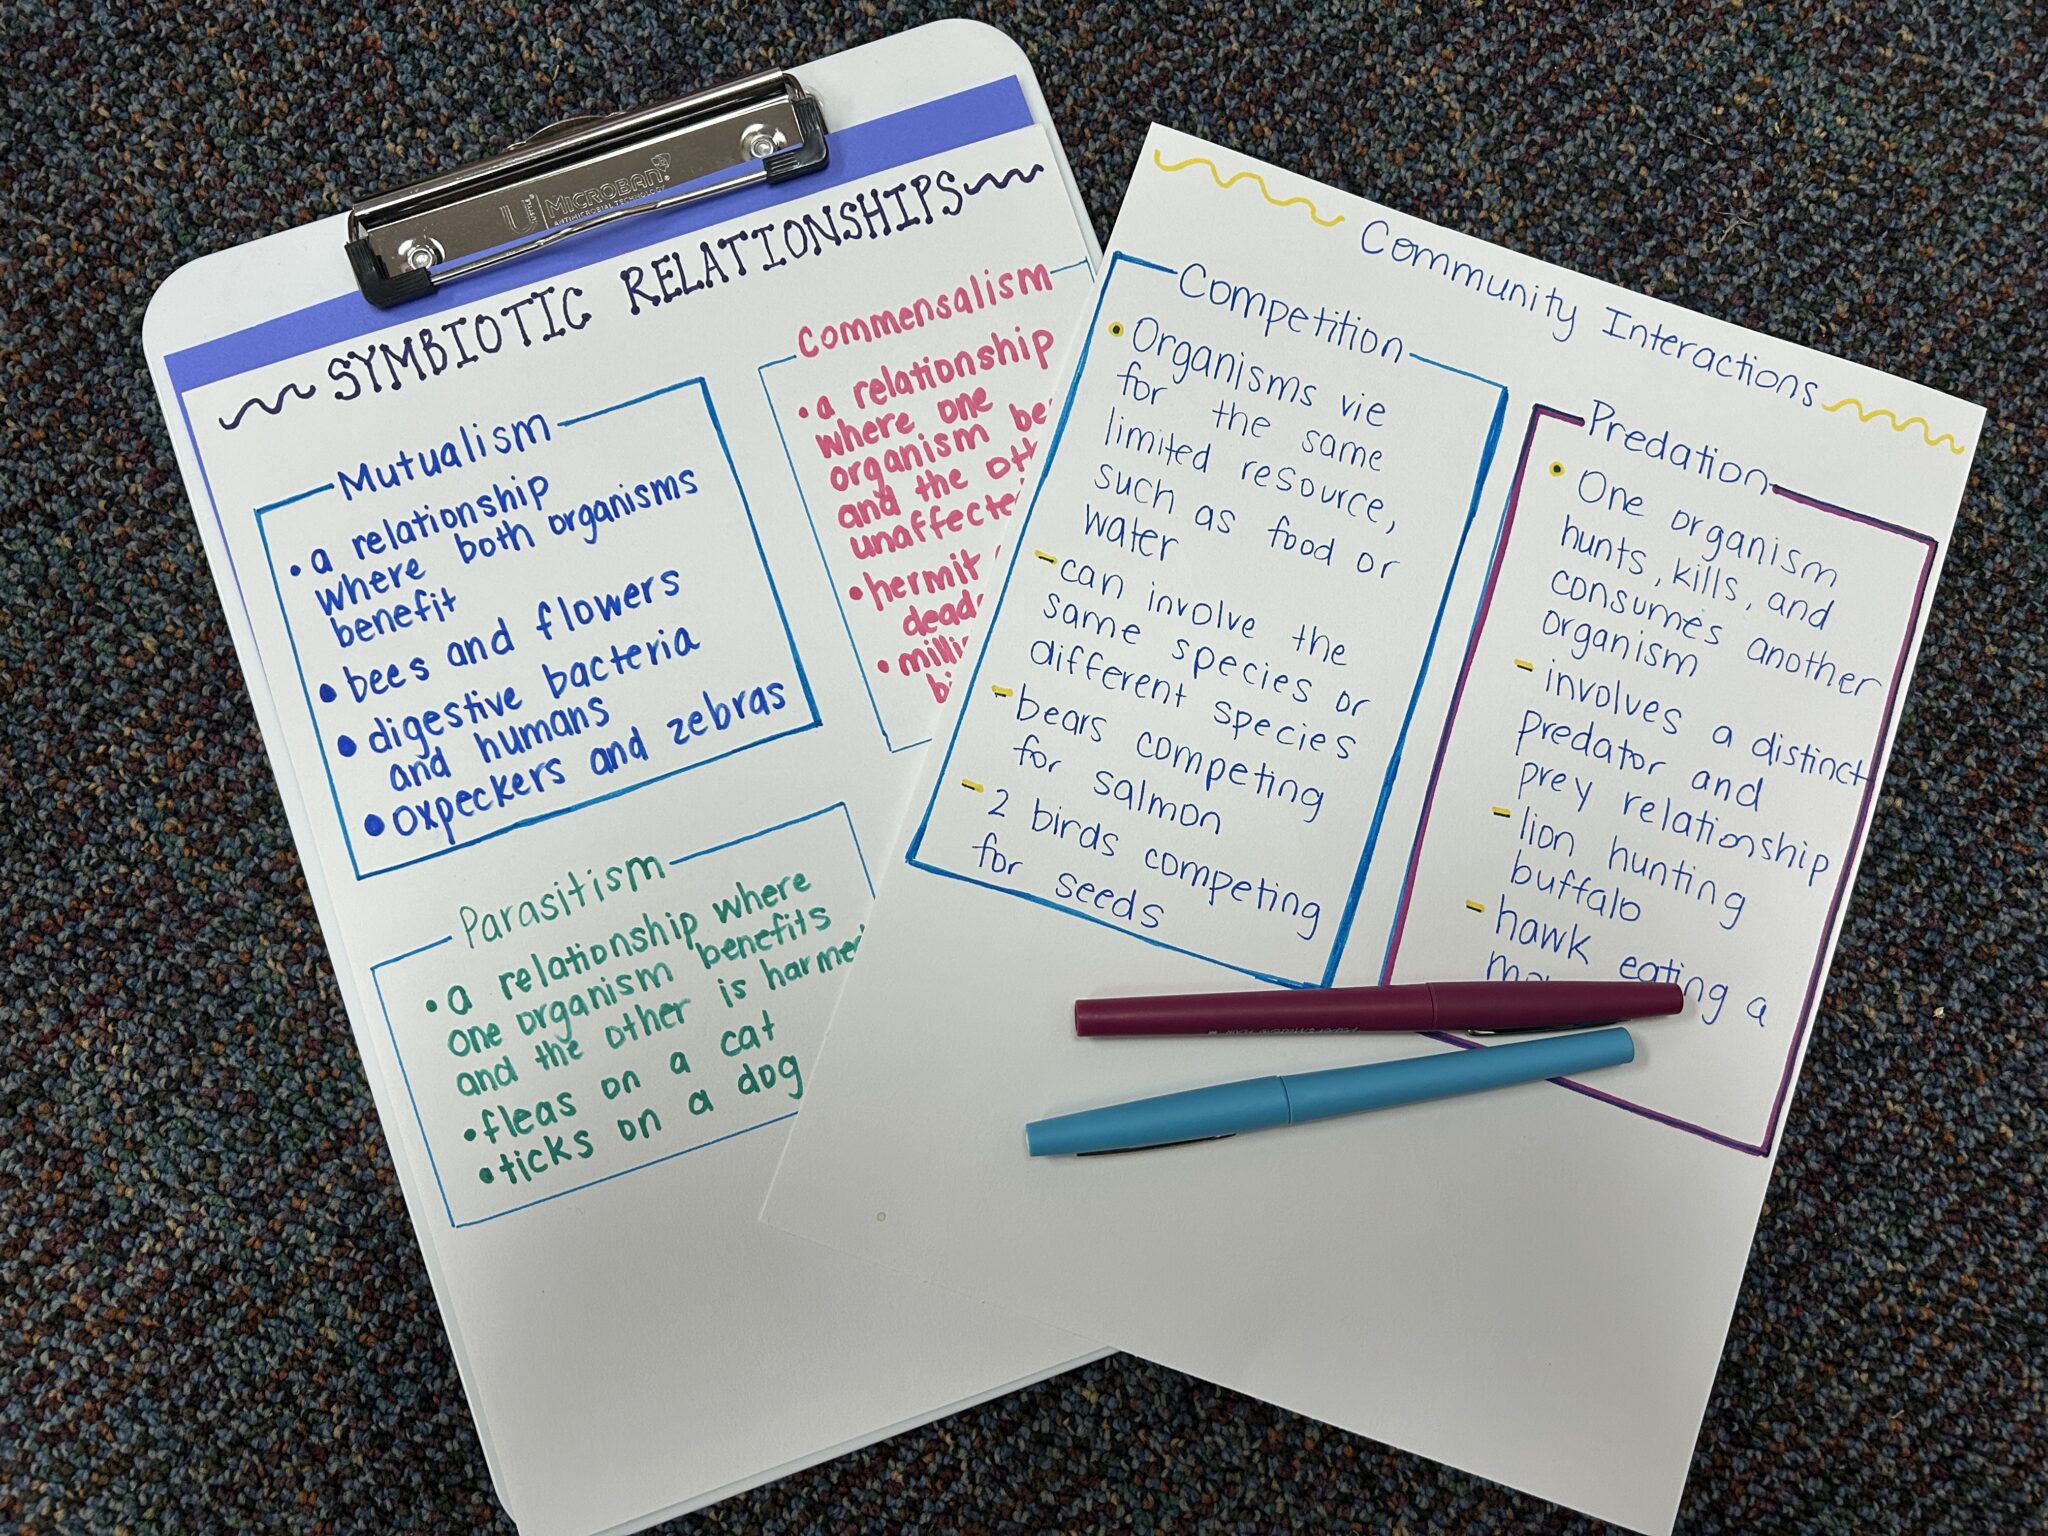 MICROBAN
ANTIMICROBIAL TECHNOLOGY
SYMBIOTIC RELATIONSHIPS
Mutualism
• a relationship
where both organisms
benefit
• bees and flowers
• digestive bacteria
and humans
• oxpeckers and zebras
Commensalism
• a relationship
where one
organism
and the
• hermit
Parasitism
• a relationship where
one organism benefits
and the other is harmed
• fleas on a cat
• ticks on a dog
Community Interactions
Competition
• Organisms vie
for the same
limited resource,
such as food or
water
- can involve the
same species or
different species
- bears competing
for salmon
- 2 birds competing
for seeds
Predation
• One organism
hunts, kills, and
consumes another
organism
- involves a distinct
predator and
prey relationship
- lion hunting
buffalo
- hawk eating a